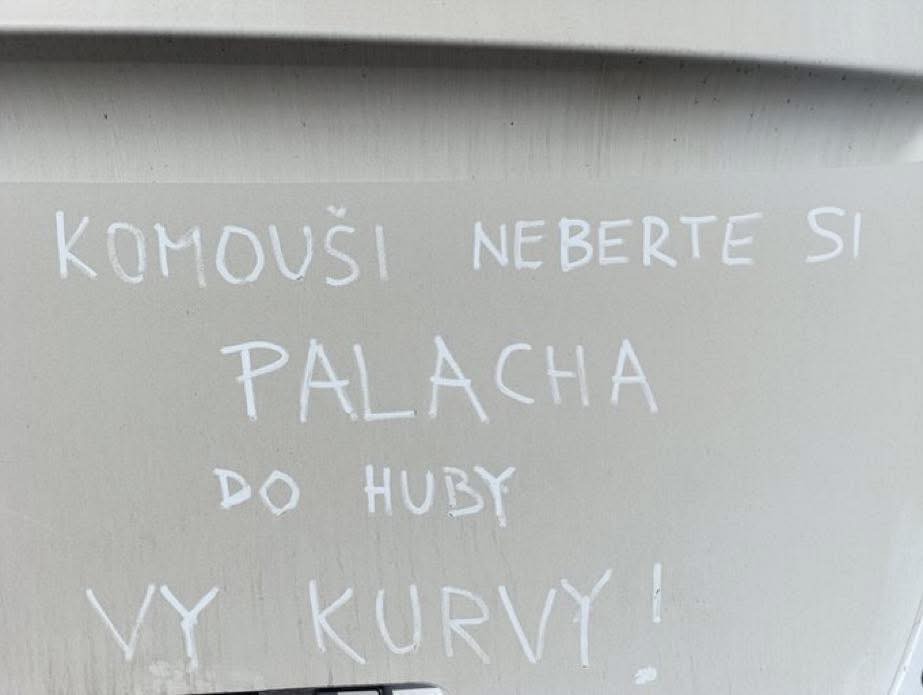 KOMOUŠI NEBERTE SI
PALACHA
DO HUBY
VY KURVY!